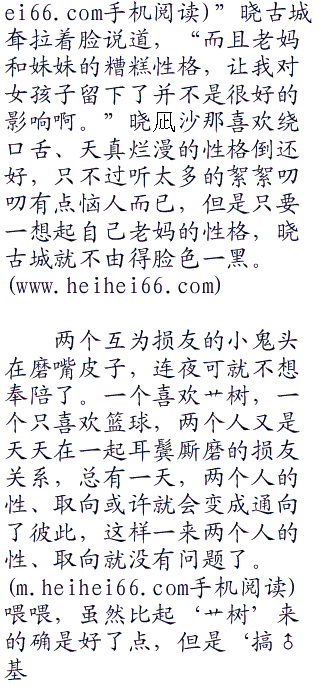 ei66.com手机阅读)”晓古城
耷拉着脸说道，“而且老妈
和妹妹的糟糕性格，让我对
女孩子留下了并不是很好的
影响啊。”晓凪沙那喜欢绕
口舌、天真烂漫的性格倒还
好，只不过听太多的絮絮叨
叨有点恼人而已，但是只要
一想起自己老妈的性格，晓
古城就不由得脸色一黑。
(www.heihei66.com)
两个互为损友的小鬼头
在磨嘴皮子，连夜可就不想
奉陪了。一个喜欢艹树，一
个只喜欢篮球，两个人又是
天天在一起耳鬓厮磨的损友
关系，总有一天，两个人的
性、取向或许就会变成通向
了彼此，这样一来两个人的
性、取向就没有问题了。
(m.heihei66.com手机阅读)
喂喂，虽然比起‘艹树’来
的确是好了点，但是‘搞♂
基